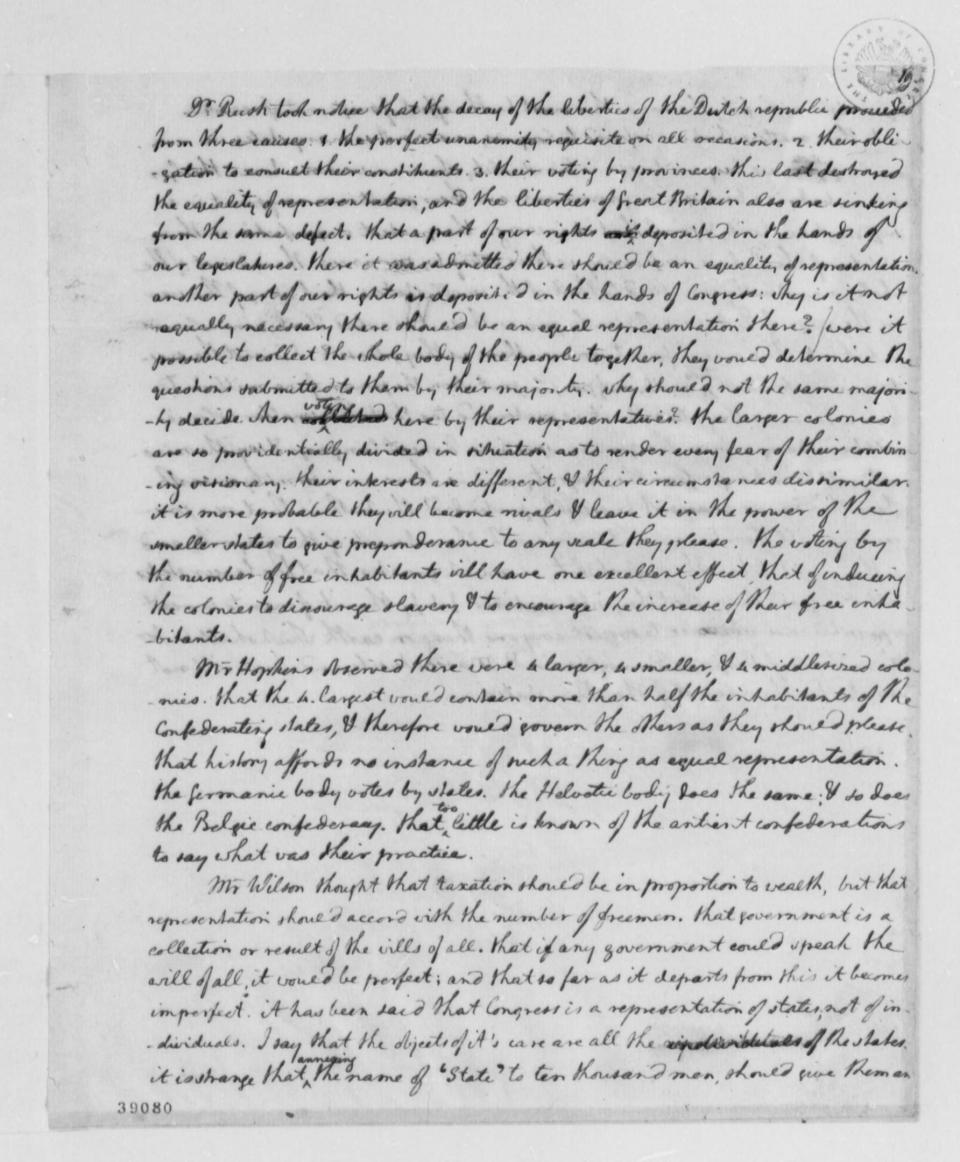 THE LIBRARY OF CONGRESS
19
Dr. Rush took notice that the decay of the liberties of the Dutch republic proceeded
from three causes. 1. the perfect unanimity requisite on all occasions. 2. their obli-
-gation to consult their constituents. 3. their voting by provinces. this last destroyed
the equality of representation, and the liberties of Great Britain also are sinking
from the same defect. that a part of our rights is deposited in the hands of
our legislatures. there it was admitted there should be an equality of representation.
another part of our rights is deposited in the hands of Congress: why is it not
equally necessary there should be an equal representation there? were it
possible to collect the whole body of the people together, they would determine the
questions submitted to them by their majority. why should not the same majori-
-ty decide when voting here by their representatives? the larger colonies
are so providentially divided in situation as to render every fear of their combin-
-ing visionary. their interests are different, & their circumstances dissimilar.
it is more probable they will become rivals & leave it in the power of the
smaller states to give preponderance to any scale they please. the voting by
the number of free inhabitants will have one excellent effect, that of inducing
the colonies to discourage slavery & to encourage the increase of their free inha-
-bitants.
Mr Hopkins observed there were 4 larger, 4 smaller, & 4 middlesized colo-
-nies. that the 4. largest would contain more than half the inhabitants of the
Confederating states, & therefore would govern the others as they should please.
that history affords no instance of such a thing as equal representation.
the Germanic body votes by states. the Helvetic body does the same; & so does
the Belgic confederacy. that too little is known of the antient confederations
to say what was their practice.
Mr Wilson thought that taxation should be in proportion to wealth, but that
representation should accord with the number of freemen. that government is a
collection or result of the wills of all. that if any government could speak the
will of all, it would be perfect; and that so far as it departs from this it becomes
imperfect. it has been said that Congress is a representation of states, not of in-
-dividuals. I say that the objects of it's care are all the individuals of the states.
it is strange that annexing the name of "State" to ten thousand men, should give them an
39080